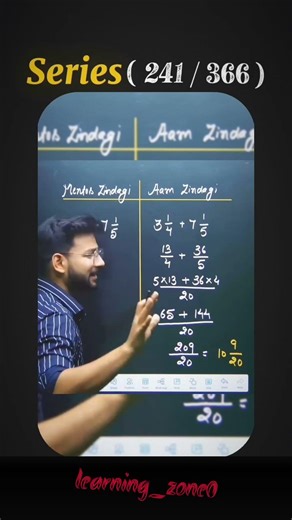 Series ( 241 / 366 )
Mentos Zindagi Aam Zindagi
Mentos Zindagi Aam Zindagi
7 1/5 3 1/4 + 7 1/5
13/4 + 36/5
5×13 + 36×4 / 20
65 + 144 / 20
209/20 = 10 9/20
209/20 =
learning_zone0